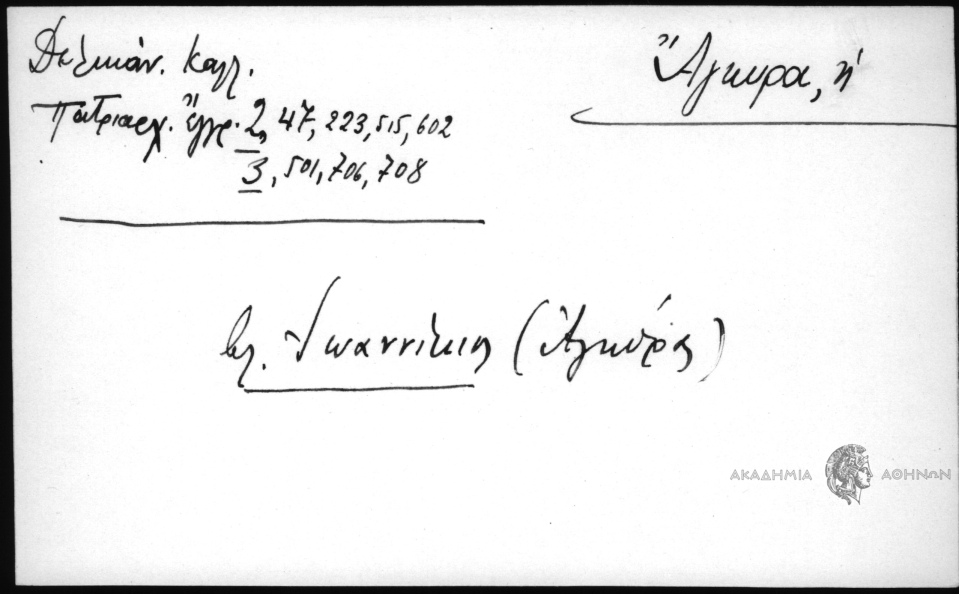 Δελικάν. Καλλ.
Πατριαρχ. ἔγγρ. 2, 47, 223, 515, 602
3, 501, 706, 708
Ἄγκυρα, ἡ
βλ. Ἰωαννίκιος (Ἀγκύρας)
ΑΚΑΔΗΜΙΑ ΑΘΗΝΩΝ